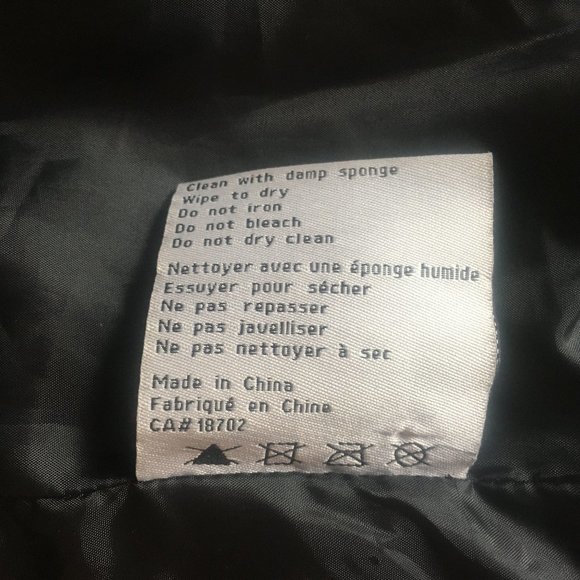 Clean with damp sponge
Wipe to dry
Do not iron
Do not bleach
Do not dry clean
Nettoyer avec une éponge humide
Essuyer pour sécher
Ne pas repasser
Ne pas javelliser
Ne pas nettoyer à sec
Made in China
Fabriqué en Chine
CA# 18702